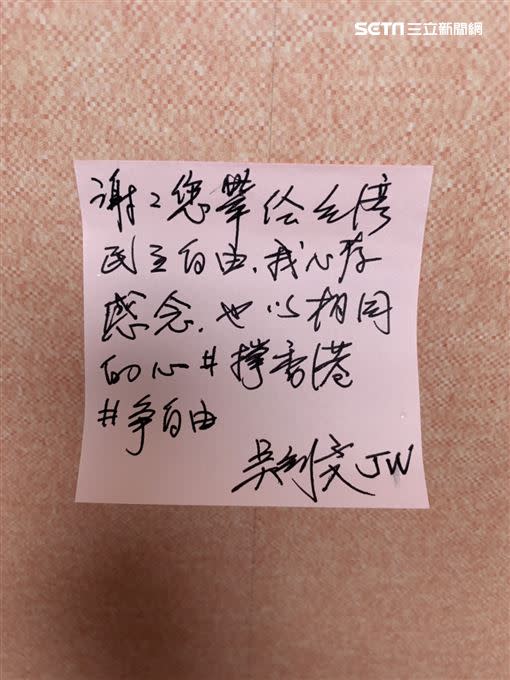 SETN 三立新聞網
謝〻您帶给台灣
民主自由.我心存
感念.也以相同
的心#撐香港
#争自由
吳釗燮 JW